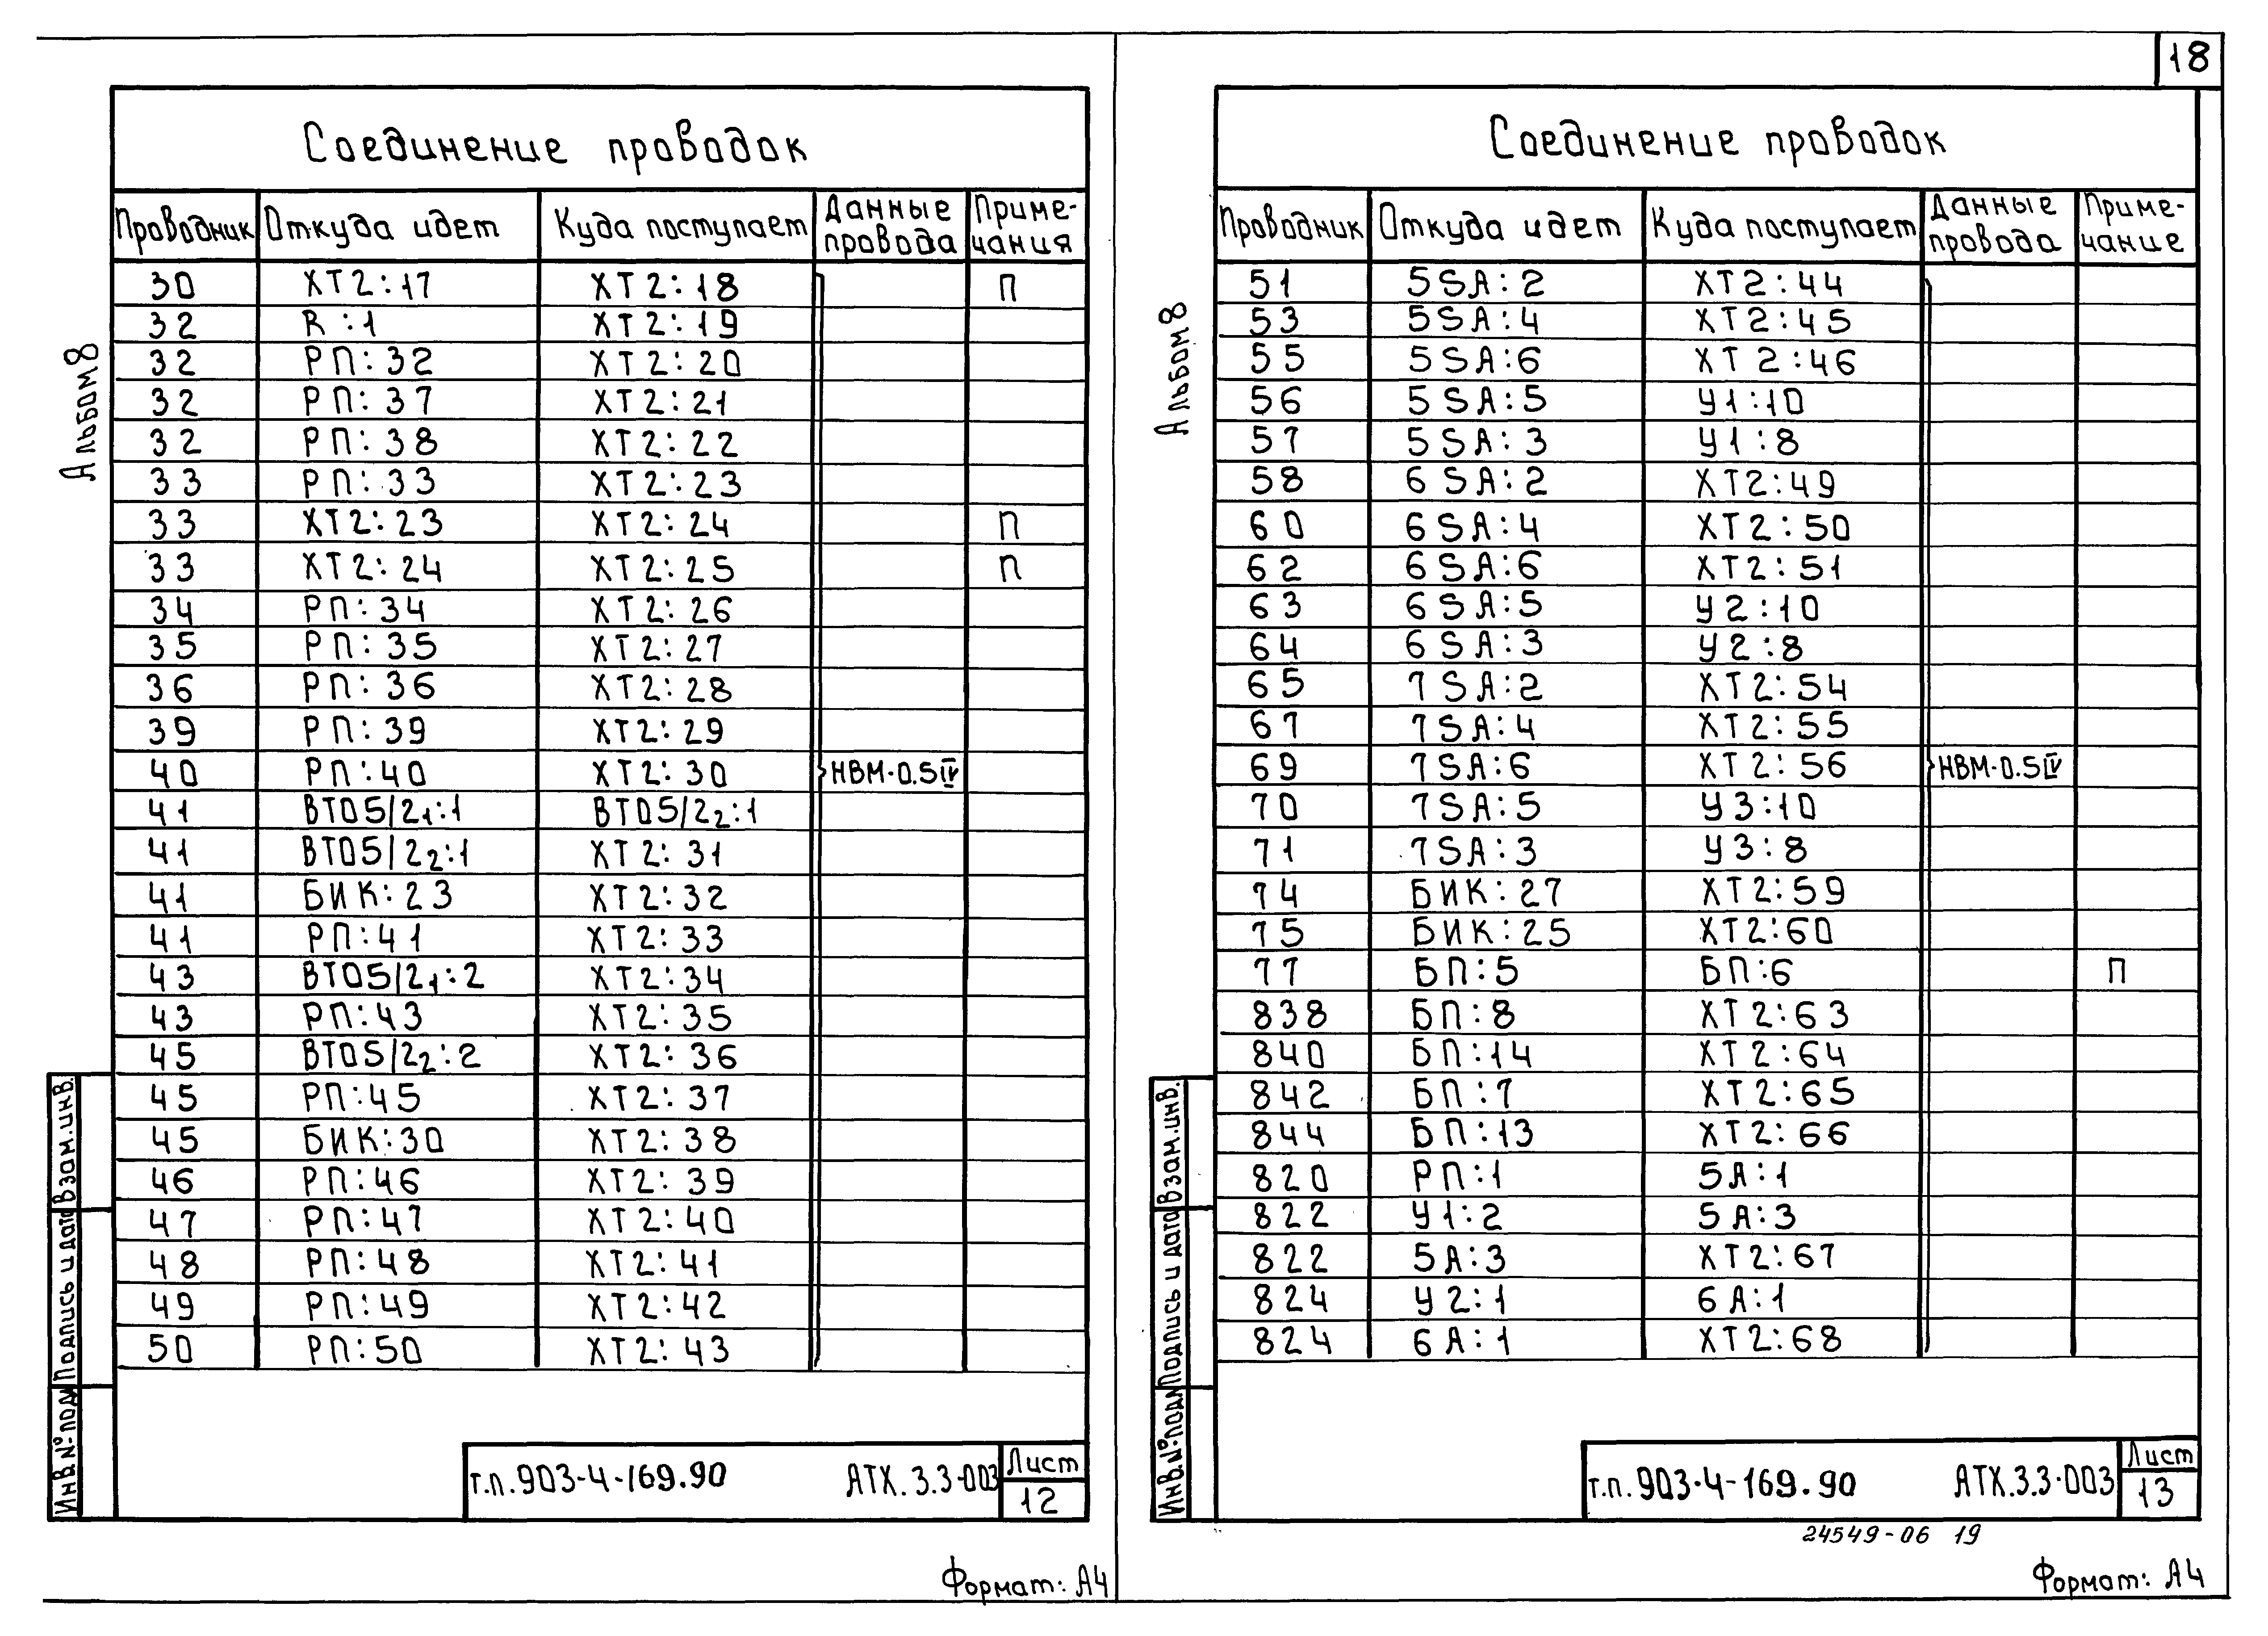 18
Соединение проводок
Проводник Откуда идет Куда поступает Данные провода Приме-чания
30 ХТ2:17 ХТ2:18 П
32 R:1 ХТ2:19
32 РП:32 ХТ2:20
32 РП:37 ХТ2:21
32 РП:38 ХТ2:22
33 РП:33 ХТ2:23
33 ХТ2:23 ХТ2:24 П
33 ХТ2:24 ХТ2:25 П
34 РП:34 ХТ2:26
35 РП:35 ХТ2:27
36 РП:36 ХТ2:28
39 РП:39 ХТ2:29
40 РП:40 ХТ2:30 НВМ-0.5 IV
41 ВТ05/2₁:1 ВТ05/2₂:1
41 ВТ05/2₂:1 ХТ2:31
41 БИК:23 ХТ2:32
41 РП:41 ХТ2:33
43 ВТ05/2₁:2 ХТ2:34
43 РП:43 ХТ2:35
45 ВТ05/2₂:2 ХТ2:36
45 РП:45 ХТ2:37
45 БИК:30 ХТ2:38
46 РП:46 ХТ2:39
47 РП:47 ХТ2:40
48 РП:48 ХТ2:41
49 РП:49 ХТ2:42
50 РП:50 ХТ2:43
Альбом 8
Взам.инв.
Подпись и дата
Инв.№подл
т.п.903-4-169.90 АТХ.3.3-003 Лист
12
Формат: А4
Соединение проводок
Проводник Откуда идет Куда поступает Данные провода Приме-чание
51 5SA:2 ХТ2:44
53 5SA:4 ХТ2:45
55 5SA:6 ХТ2:46
56 5SA:5 У1:10
57 5SA:3 У1:8
58 6SA:2 ХТ2:49
60 6SA:4 ХТ2:50
62 6SA:6 ХТ2:51
63 6SA:5 У2:10
64 6SA:3 У2:8
65 7SA:2 ХТ2:54
67 7SA:4 ХТ2:55
69 7SA:6 ХТ2:56 НВМ-0.5 IV
70 7SA:5 У3:10
71 7SA:3 У3:8
74 БИК:27 ХТ2:59
75 БИК:25 ХТ2:60
77 БП:5 БП:6 П
838 БП:8 ХТ2:63
840 БП:14 ХТ2:64
842 БП:7 ХТ2:65
844 БП:13 ХТ2:66
820 РП:1 5А:1
822 У1:2 5А:3
822 5А:3 ХТ2:67
824 У2:1 6А:1
824 6А:1 ХТ2:68
Альбом 8
Взам.инв.
Подпись и дата
Инв.№подл
т.п.903-4-169.90 АТХ.3.3-003 Лист
13
24549-06 19
Формат: А4